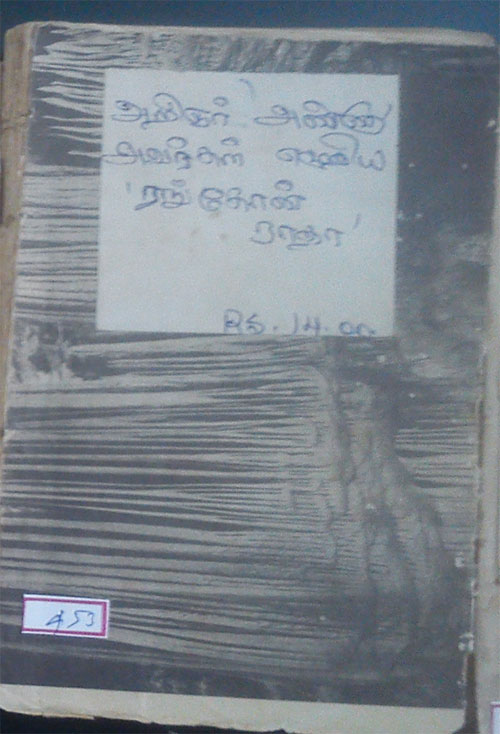 அறிஞர் அண்ணா
அவர்கள் எழுதிய
'ரங்கோன்
ராதா'
Rs. 14.00
453